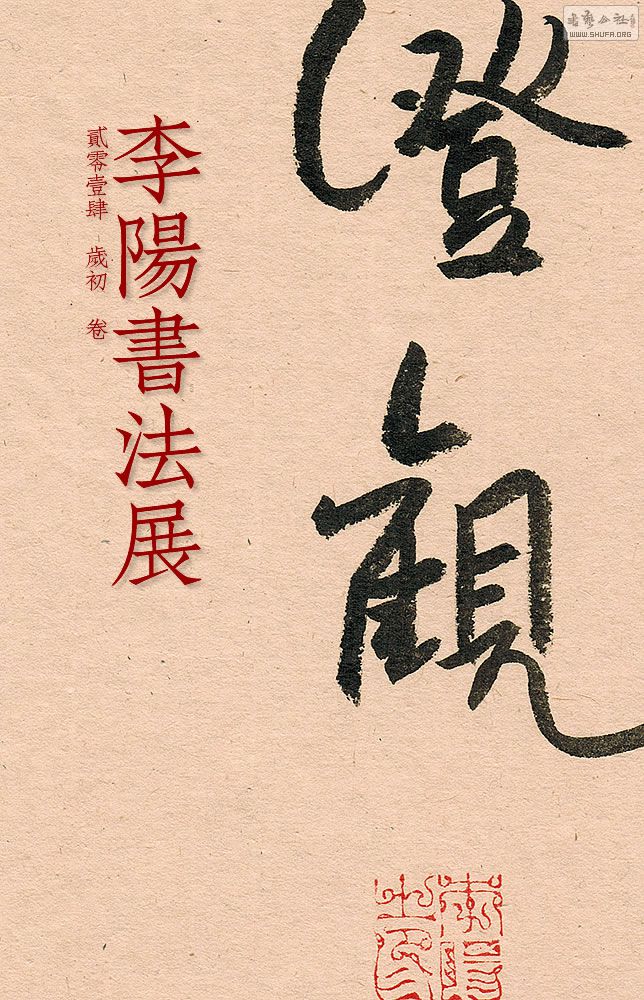 澄觀
李陽書法展
貳零壹肆 歲初 卷
書藝公社
WWW.SHUFA.ORG